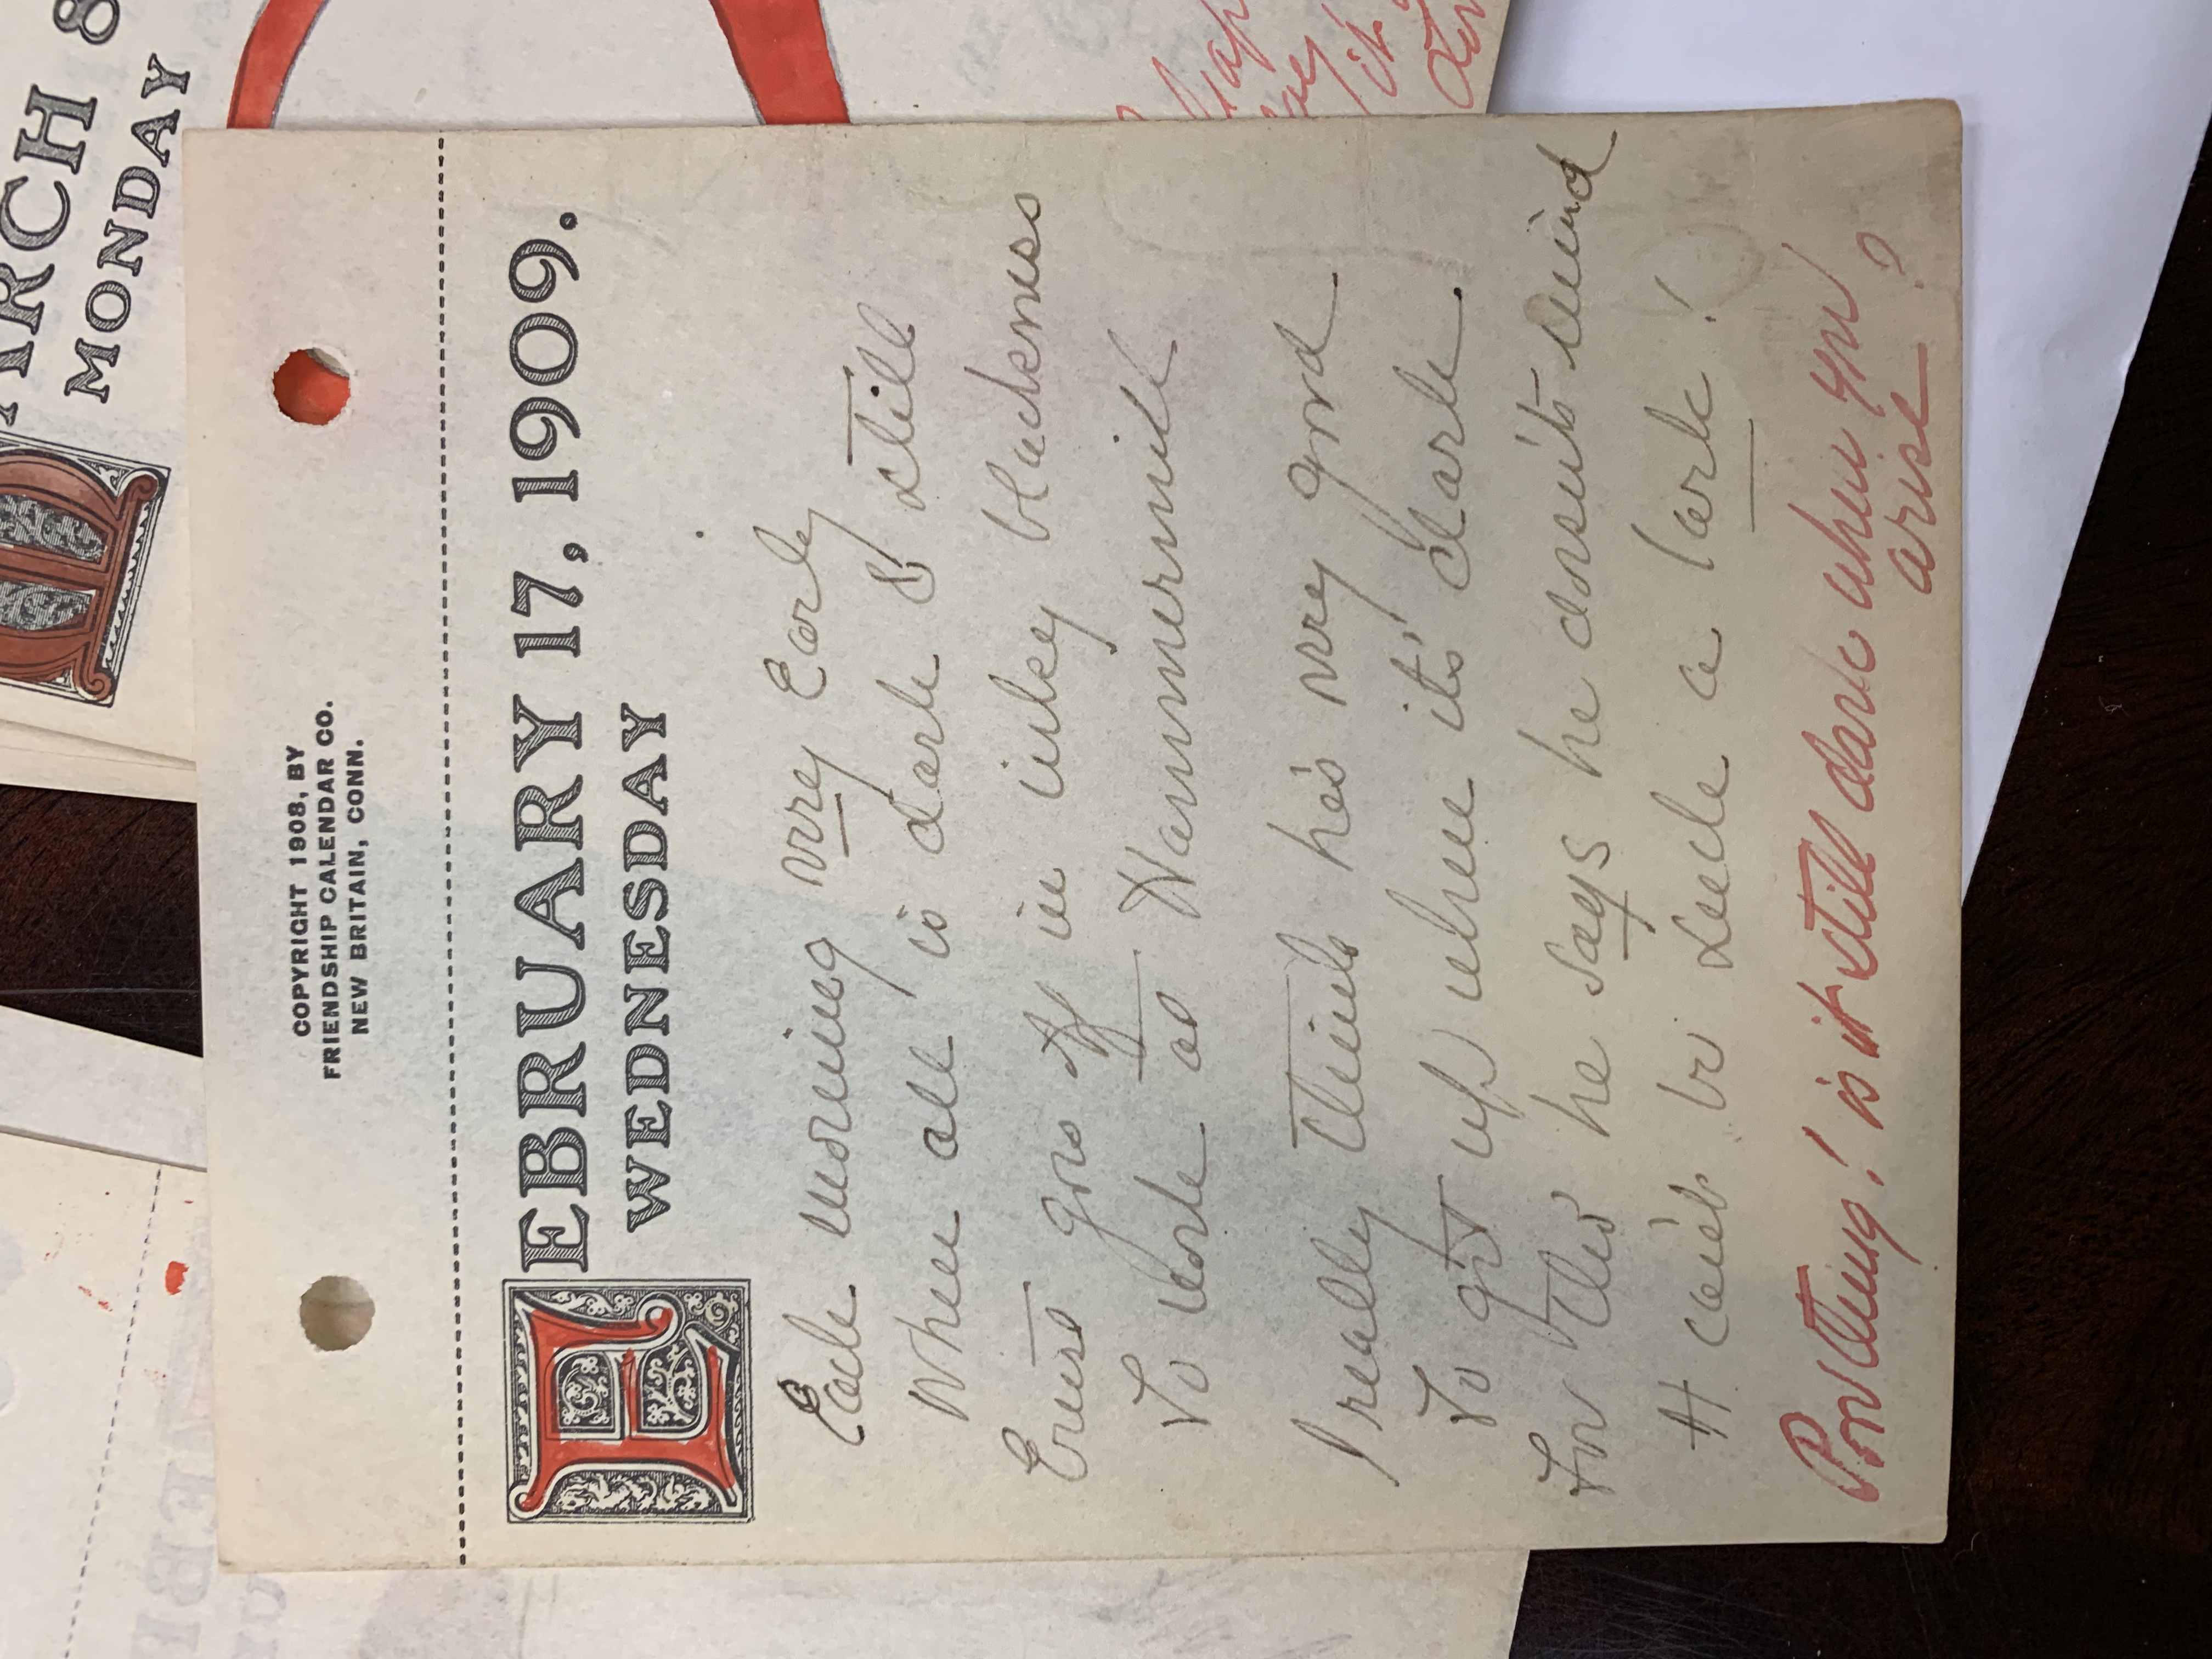 COPYRIGHT 1908, BY
FRIENDSHIP CALENDAR CO.
NEW BRITAIN, CONN.
FEBRUARY 17, 1909.
WEDNESDAY
Each morning very Early
When all is dark & still
Ernst goes off in inkey blackness
To work at Hammermill
I really think he's very good
To get up when it's dark.
For tho he says he doesn't mind
It can't be such a lark!
Poor thing! is it still dark when you
arise?
ARCH 8
MONDAY